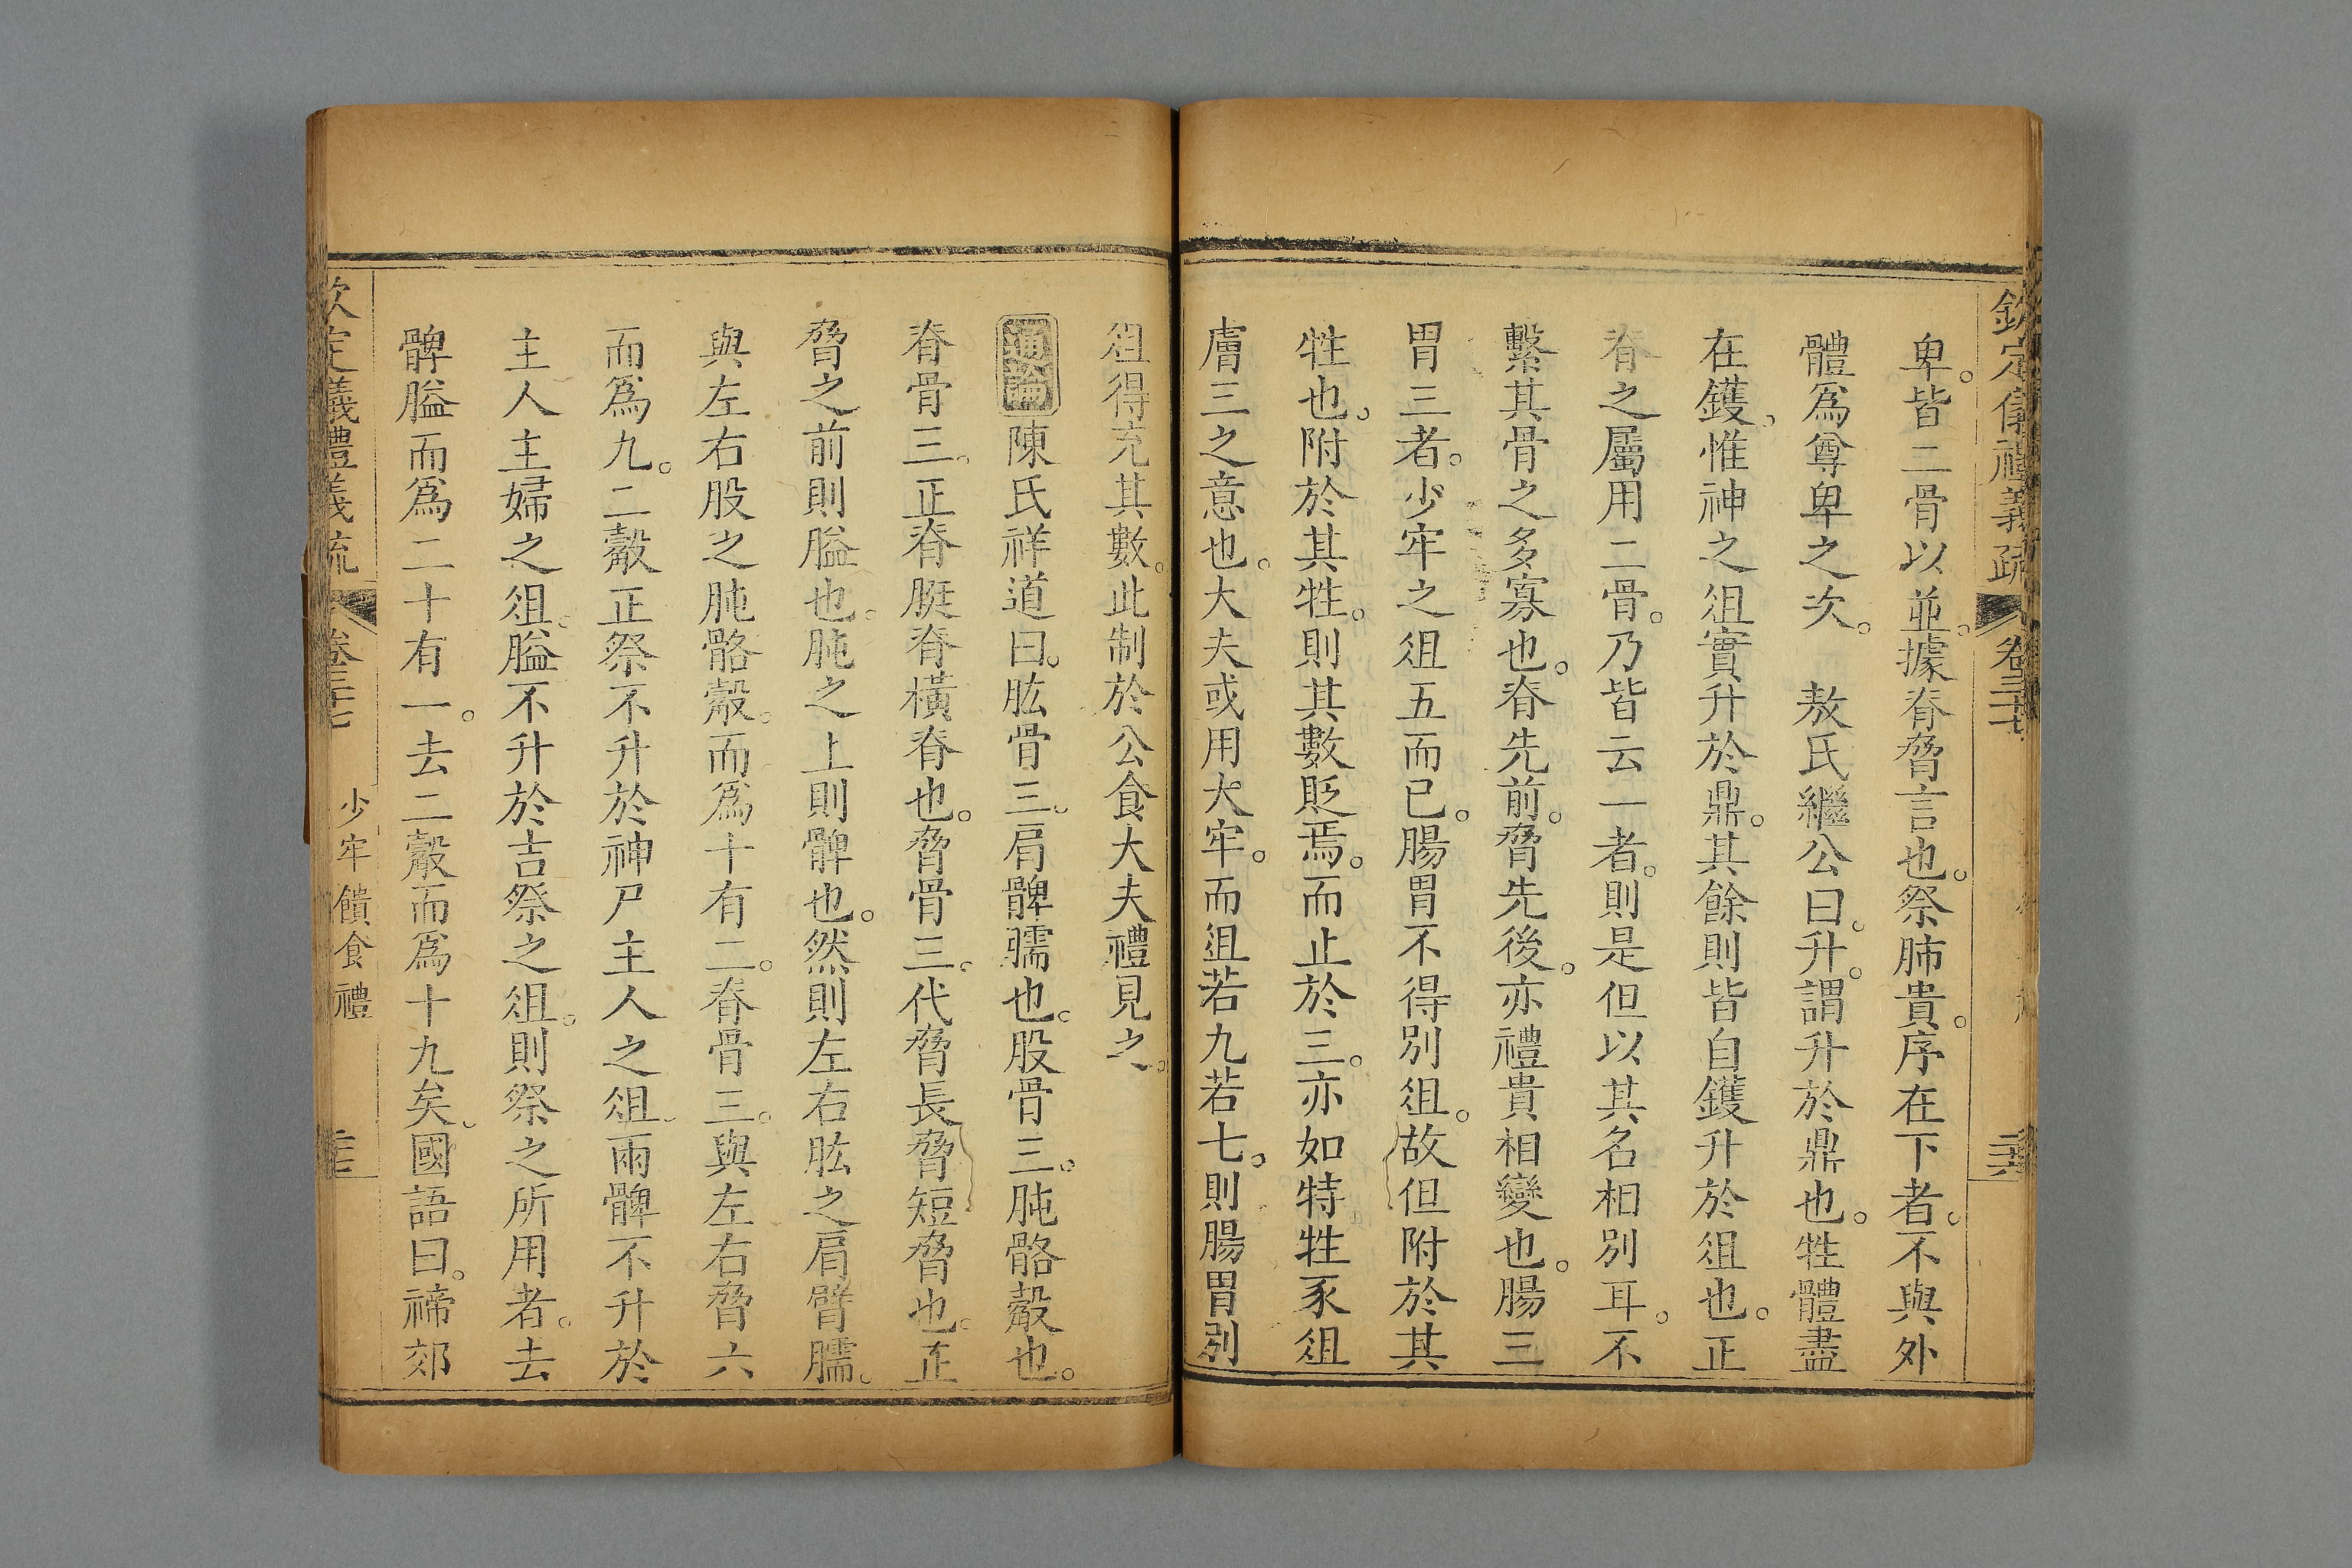 欽定儀禮義疏 卷三十七
卑。皆二骨以並。據脊脅言也。祭肺貴。序在下者。不與外
體爲尊卑之次。 敖氏繼公曰。升。謂升於鼎也。牲體盡
在鑊。惟神之俎實升於鼎。其餘則皆自鑊升於俎也。正
脊之屬用二骨。乃皆云一者。則是但以其名相別耳。不
繫其骨之多寡也。脊先前。脅先後。亦禮貴相變也。腸三
胃三者。少牢之俎五而已。腸胃不得別俎。故但附於其
牲也。附於其牲。則其數貶焉。而止於三。亦如特牲豕俎
膚三之意也。大夫或用大牢。而俎若九若七。則腸胃別
俎得充其數。此制於公食大夫禮見之。
通論 陳氏祥道曰。肱骨三。肩髀臑也。股骨三。肫骼觳也。
脊骨三。正脊脡脊橫脊也。脅骨三。代脅長脅短脅也。正
脅之前則膉也。肫之上則髀也。然則左右肱之肩臂臑。
與左右股之肫骼觳。而爲十有二。脊骨三。與左右脅六
而爲九。二觳正祭不升於神尸主人之俎。兩髀不升於
主人主婦之俎。膉不升於吉祭之俎。則祭之所用者。去
髀膉而爲二十有一。去二觳而爲十九矣。國語曰。禘郊
欽定儀禮義疏 卷三十七 少牢饋食禮